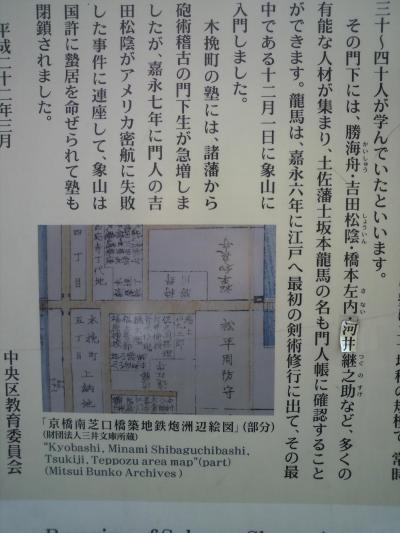 坪程の規模で、常時
三十〜四十人が学んでいたといいます。
かいしゅう しょういん さない つぐのすけ
その門下には、勝海舟・吉田松陰・橋本左内・河井継之助など、多くの
有能な人材が集まり、土佐藩士坂本龍馬の名も門人帳に確認すること
ができます。龍馬は、嘉永六年に江戸へ最初の剣術修行に出て、その最
中である十二月一日に象山に
入門しました。
木挽町の塾には、諸藩から
砲術稽古の門下生が急増しま
したが、嘉永七年に門人の吉
田松陰がアメリカ密航に失敗
した事件に連座して、象山は
国許に蟄居を命ぜられて塾も
閉鎖されました。
平成二十二年三月
中央区教育委員会
松平周防守
木挽町
五丁目
上納地
四丁目
「京橋南芝口橋築地鉄炮洲辺絵図」(部分)
(財団法人三井文庫所蔵)
"Kyobashi, Minami Shibaguchibashi,
Tsukiji, Teppozu area map"(part)
(Mitsui Bunko Archives)